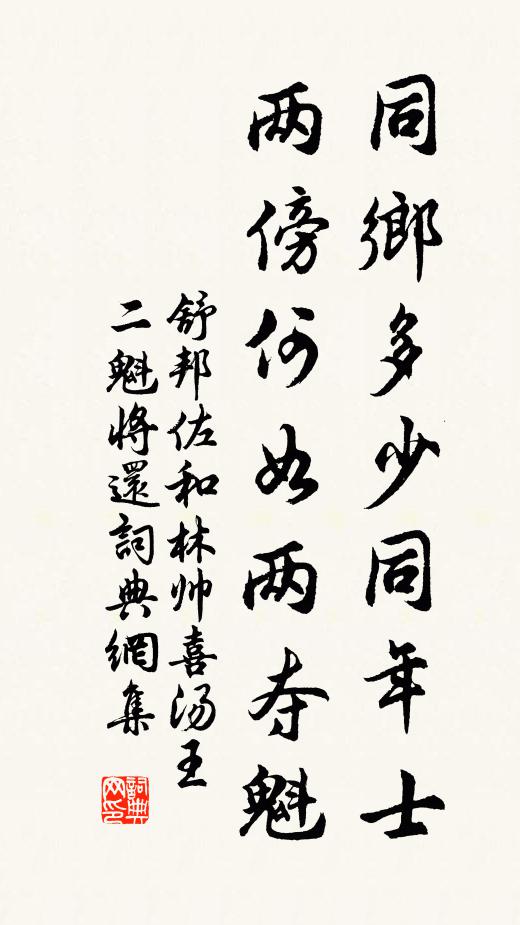 同鄉多少同年士
两傍何如两夺魁
舒邦佐和林帅喜汤王
二魁将還詞典網集
詞典网印